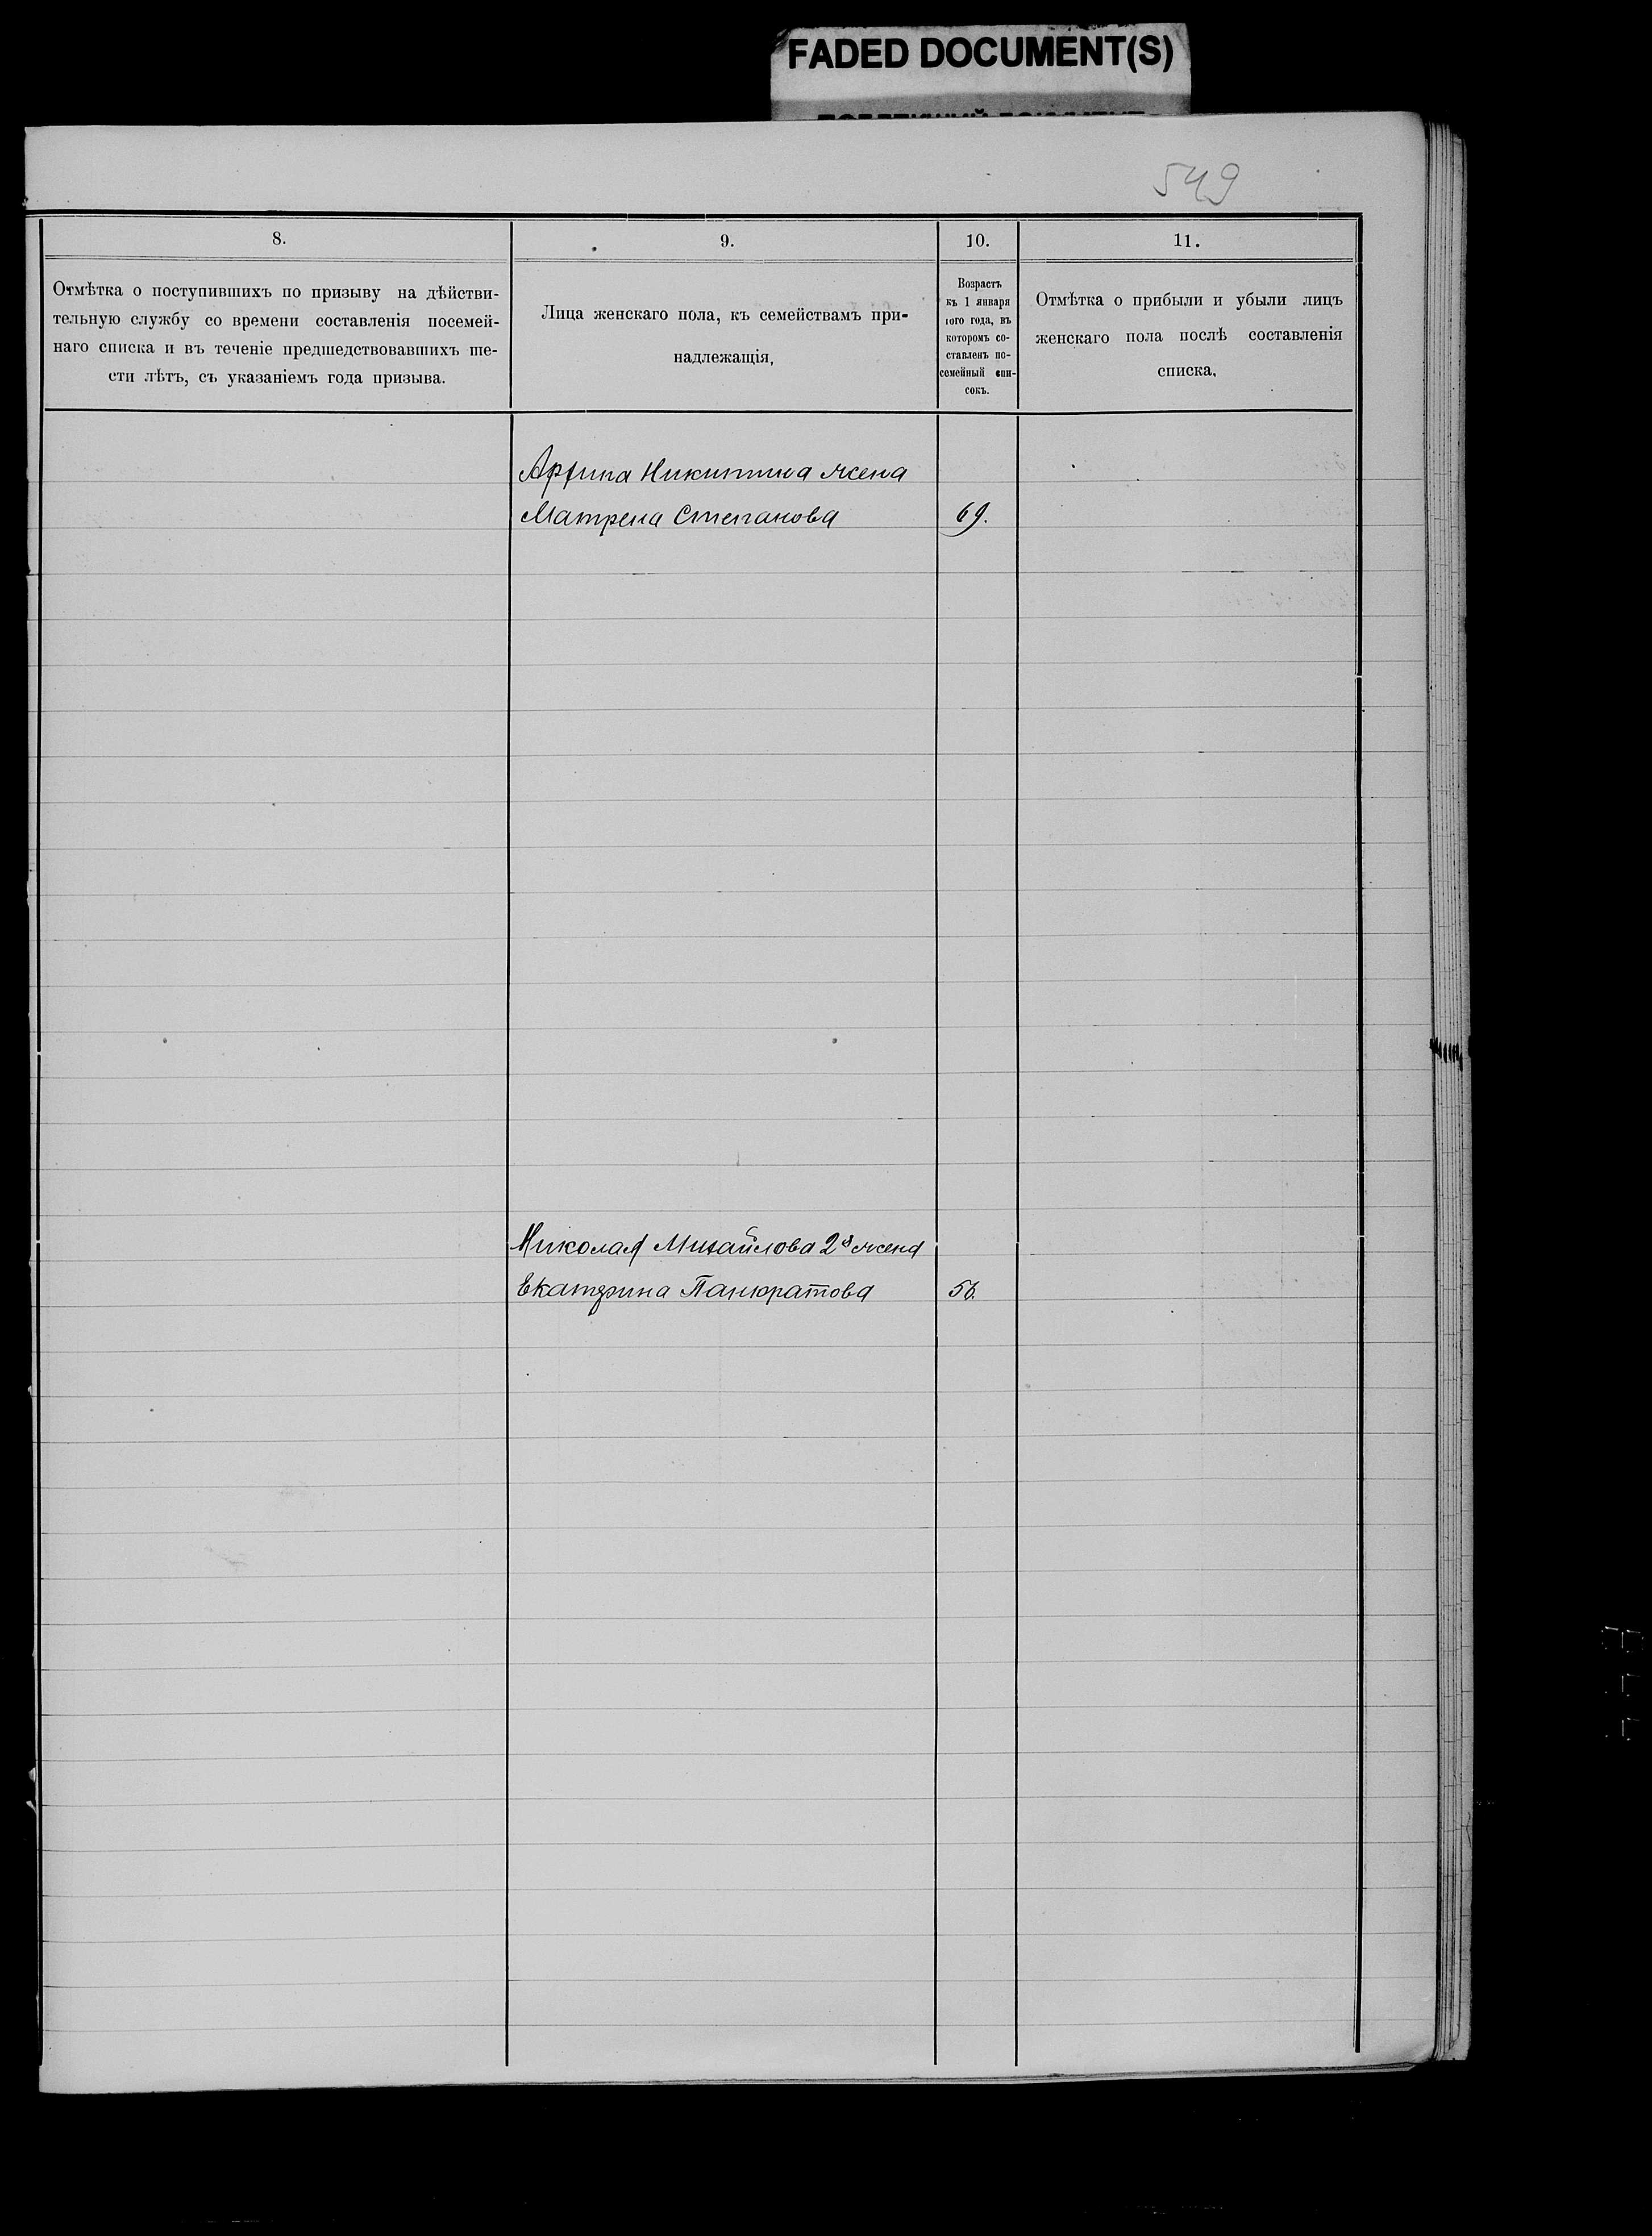 FADED DOCUMENT(S)
549
8.
Отмѣтка о поступившихъ по призыву на дѣйстви-
тельную службу со времени составленія посемей-
наго списка и въ теченіе предшедствовавшихъ ше-
сти лѣтъ, съ указаніемъ года призыва.
9.
Лица женскаго пола, къ семействамъ при-
надлежащія,
10.
Возрастъ
къ 1 января
того года, въ
которомъ со-
ставленъ по-
семейный спи-
сокъ.
11.
Отмѣтка о прибыли и убыли лицъ
женскаго пола послѣ составленія
списка,
Никитина жена
Матрена Степанова 69.
Николая Михайлова 2я жена
Екатерина Панкратова 56.